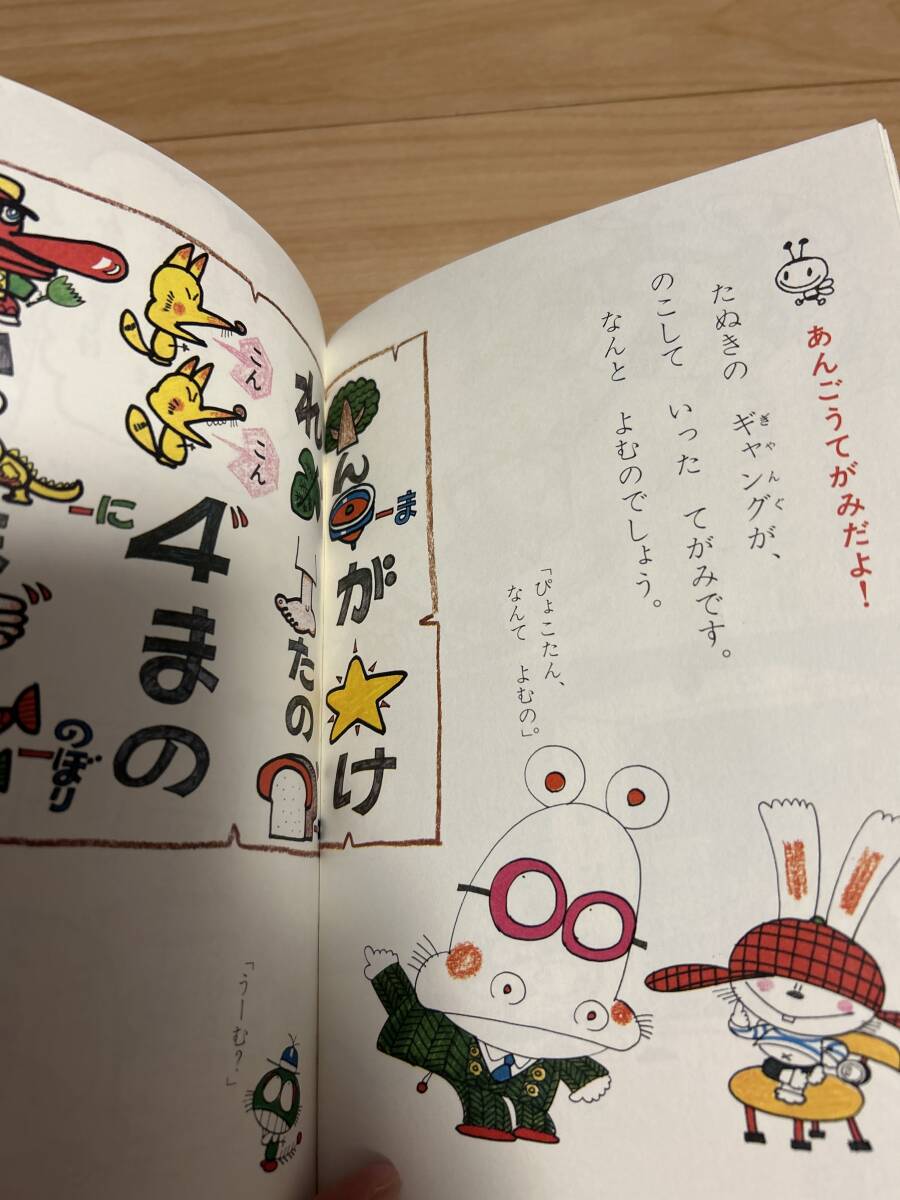 あんごうてがみだよ！
たぬきの ギャングが、
ぎゃんぐ
のこして いった てがみです。
なんと よむのでしょう。
「ぴょこたん、
なんて よむの」。
ん ーま が け
れ たの
こん
こん
4〃まの
ーに
ーのぼり
「うーむ？」